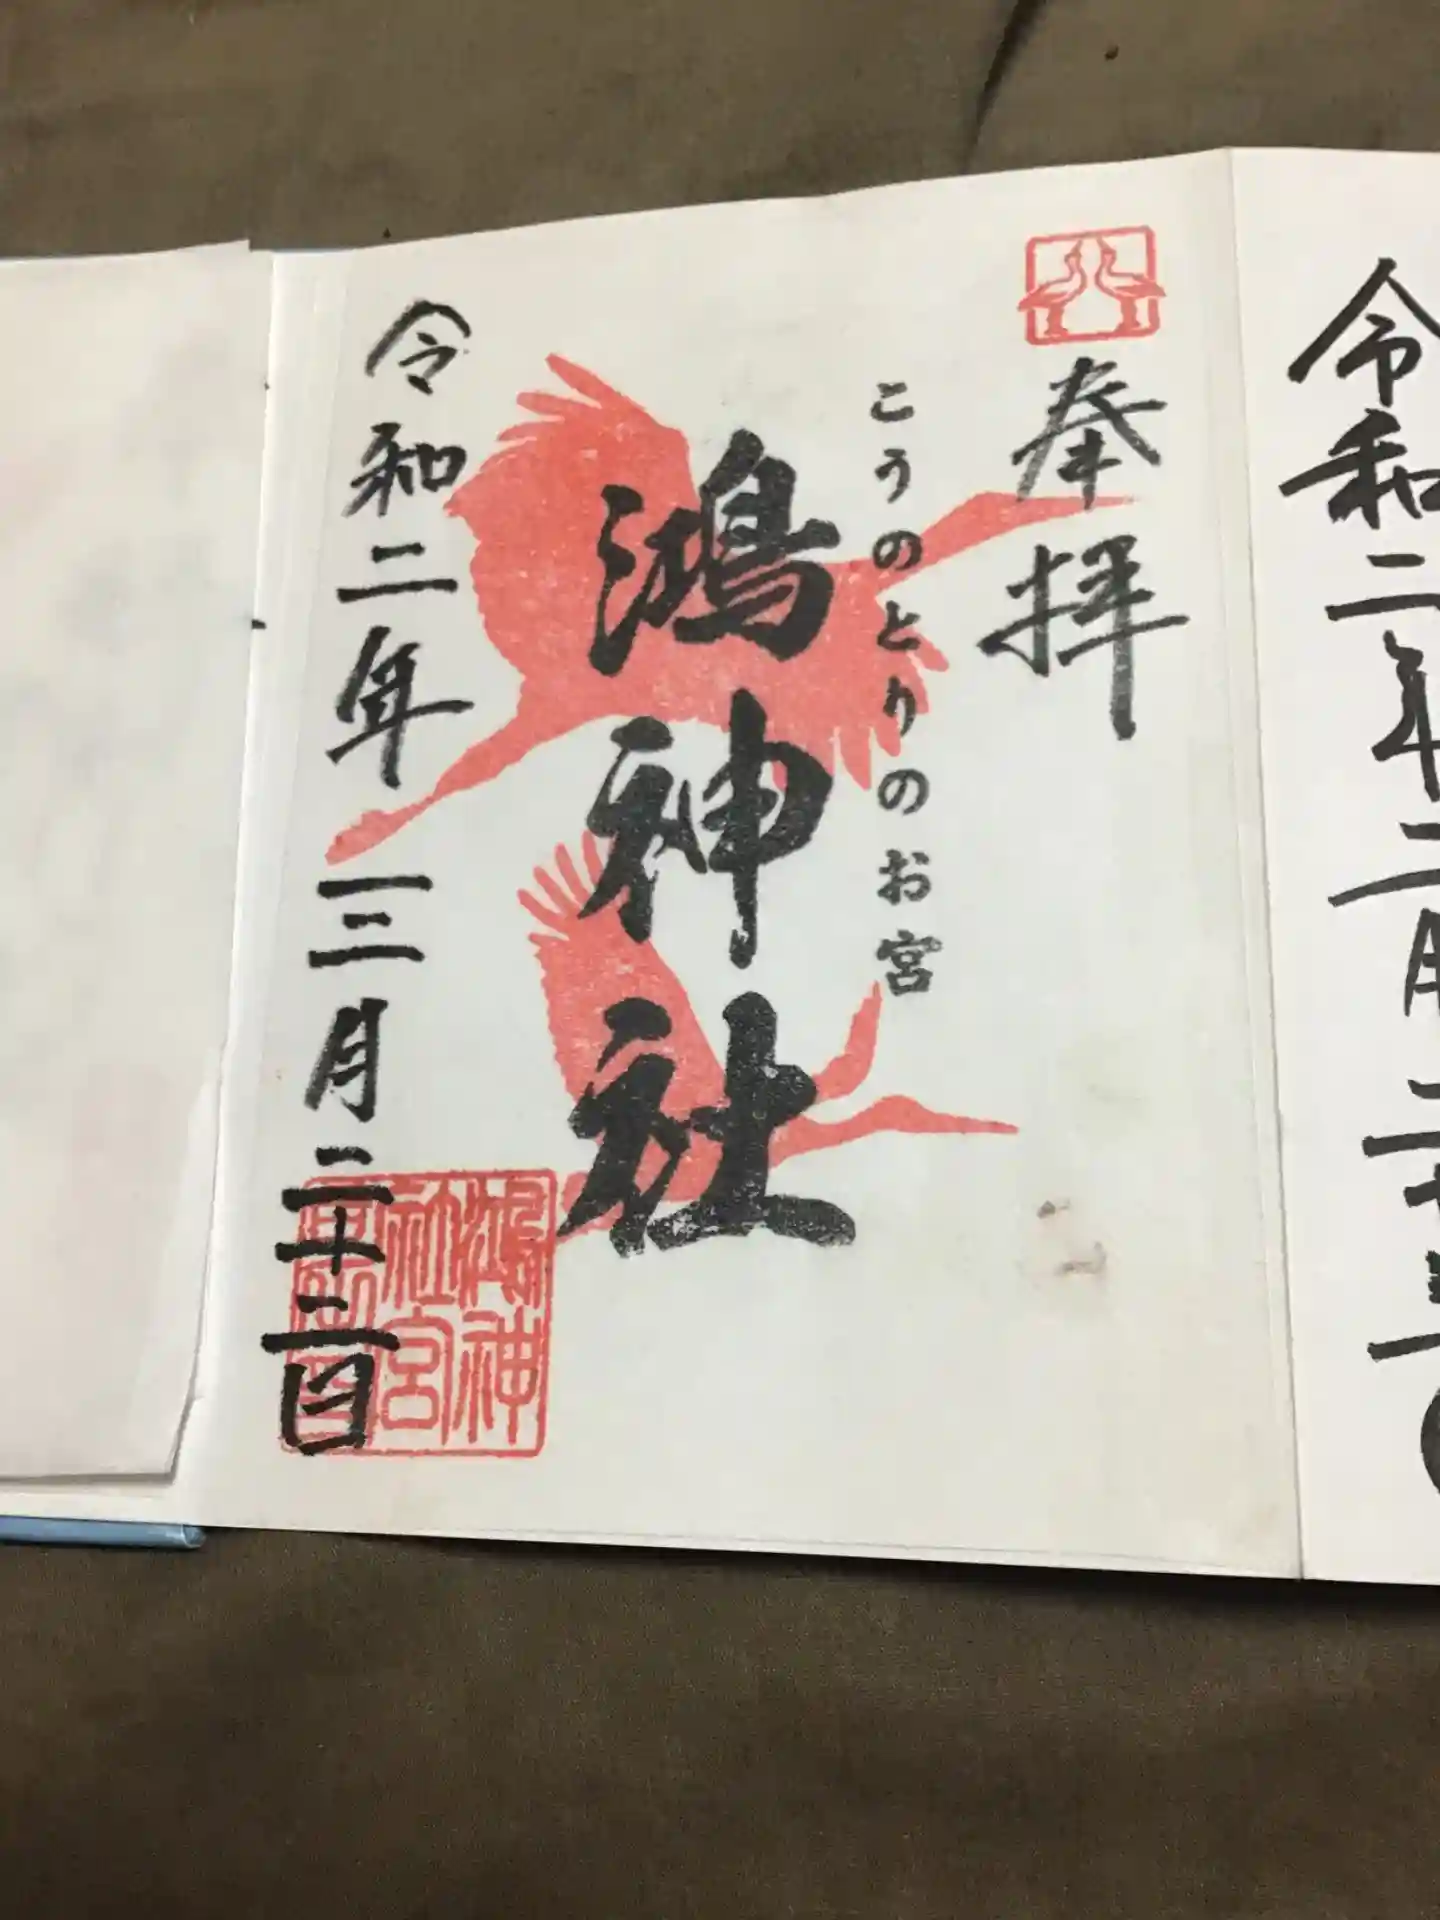 令和二年二月二十
奉拝
こうのとりのお宮
鴻神社
令和二年三月二十二日
鴻神
社宮